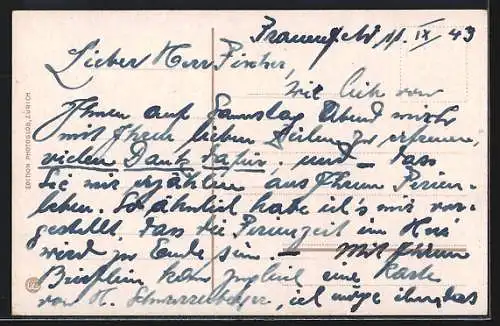 Frauenfeld 11. IX 43
Lieber Herr Fischer,
Wie lieb von
Ihnen auf Samstag Abend mich
mit Ihren lieben Zeilen zu erfreuen,
vielen Dank dafür, und – dass
Sie mir erzählen aus Ihrem Ferien-
leben. So ähnlich habe ich's mir vor-
gestellt, dass die Ferienzeit im
wird zu Ende sein. – Mit Ihrem
Brieflein kam zugleich eine Karte
von H. Schwarzenberger, ich möge ihm das
EDITION PHOTOGLOB, ZÜRICH